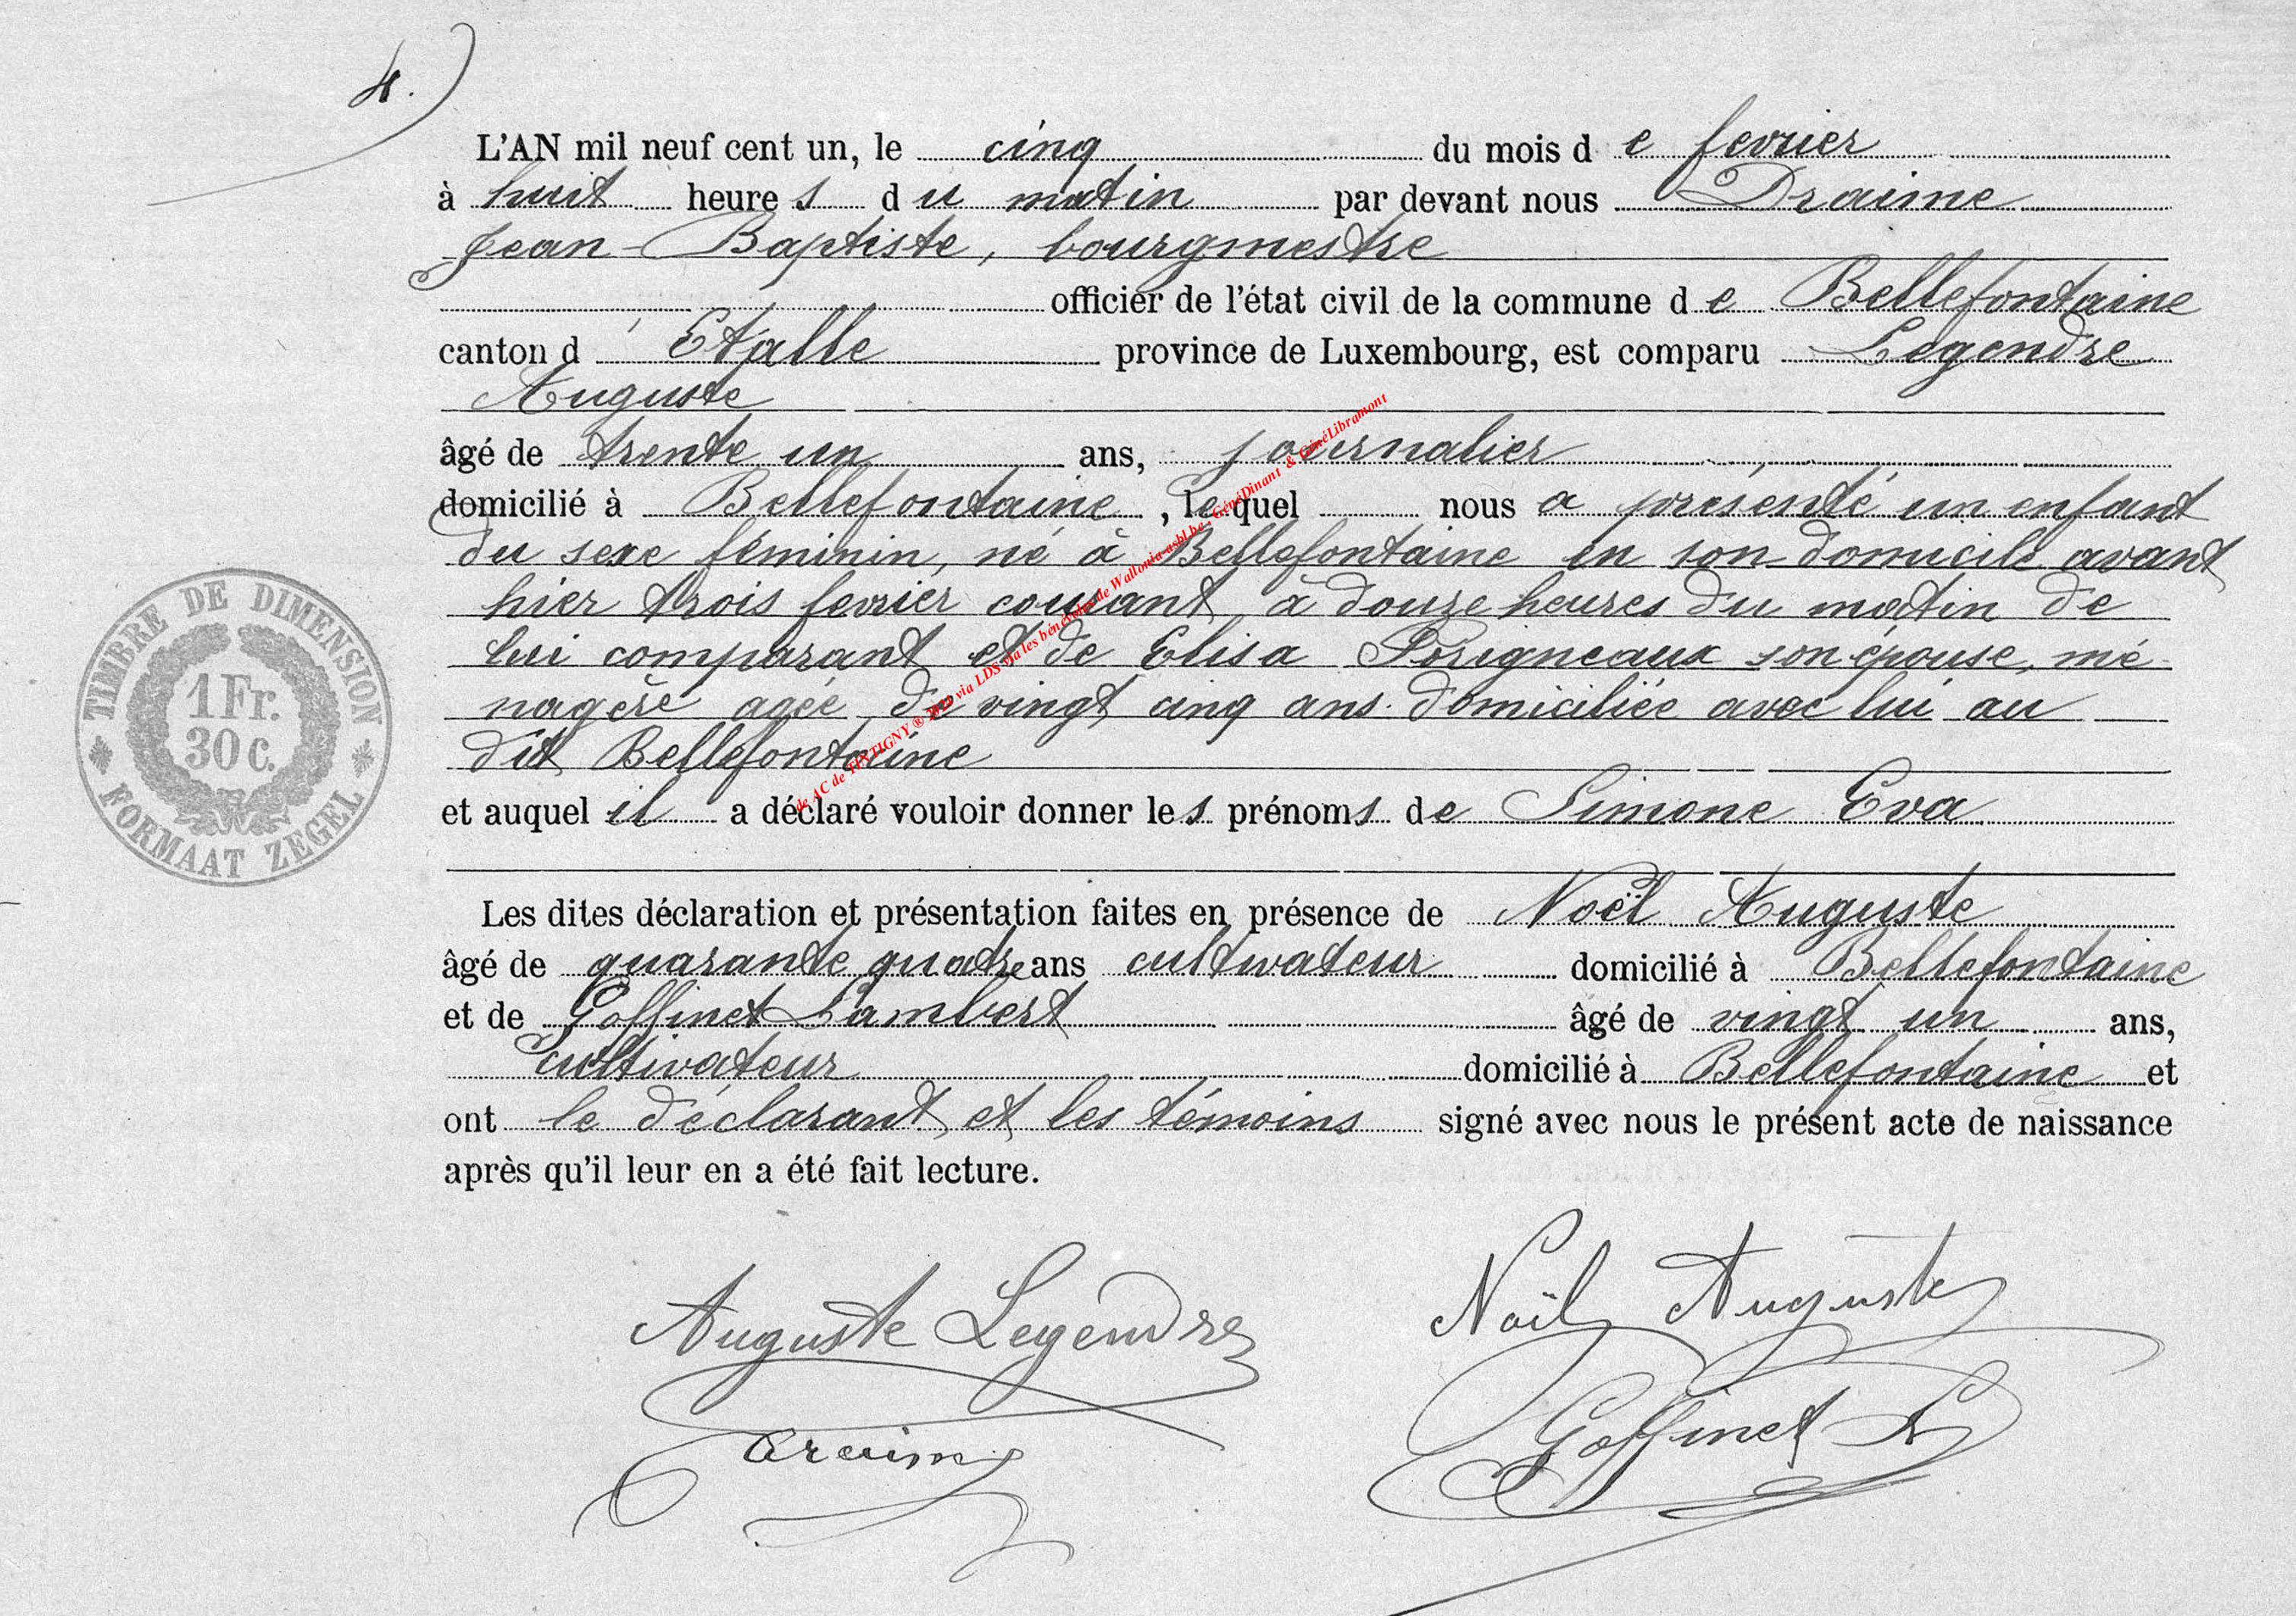 4.)
L'AN mil neuf cent un, le cinq du mois d e fevrier
à huit heure s d u matin par devant nous Draime
Jean-Baptiste, bourgmestre
officier de l'état civil de la commune d e Bellefontaine
canton d' Etalle province de Luxembourg, est comparu Legendre
Auguste
âgé de trente un ans, journalier,
domicilié à Bellefontaine, lequel nous a présenté un enfant
du sexe féminin, né à Bellefontaine en son domicile avant
hier trois fevrier courant à douze heures du matin de
lui comparant et de Elisa Porigneaux son épouse, mé
nagère agée de vingt cinq ans domiciliée avec lui au
dit Bellefontaine
et auquel il a déclaré vouloir donner les prénoms de Simone Eva
Les dites déclaration et présentation faites en présence de Noël Auguste
âgé de quarante quatre ans cultivateur domicilié à Bellefontaine
et de Goffinet Lambert âgé de vingt un ans,
cultivateur domicilié à Bellefontaine et
ont le déclarant et les témoins signé avec nous le présent acte de naissance
après qu'il leur en a été fait lecture.
Auguste Legendre
Noël Auguste
Draime
Goffinet L
TIMBRE DE DIMENSION
1 Fr.
30 c.
FORMAAT ZEGEL
de AC de TINTIGNY ® via LDS via les bénévoles de Wallonia-asbl.be, GénéDinant & GénéLibramont